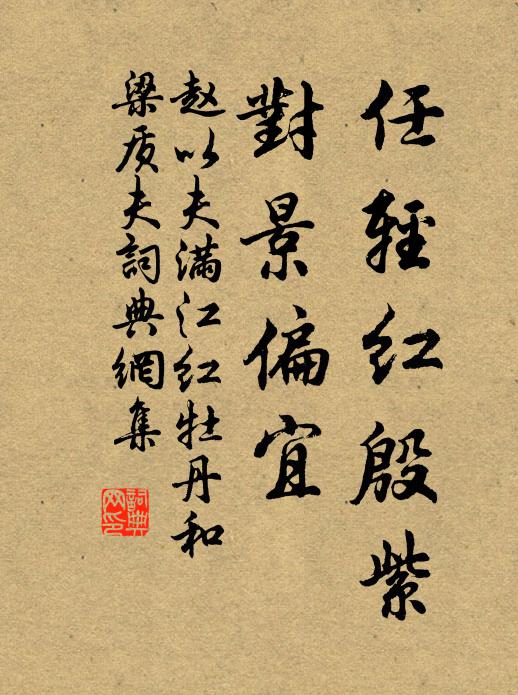 任輕紅殷紫
對景偏宜
赵以夫满江红牡丹和
梁质夫詞典網集
詞典網印